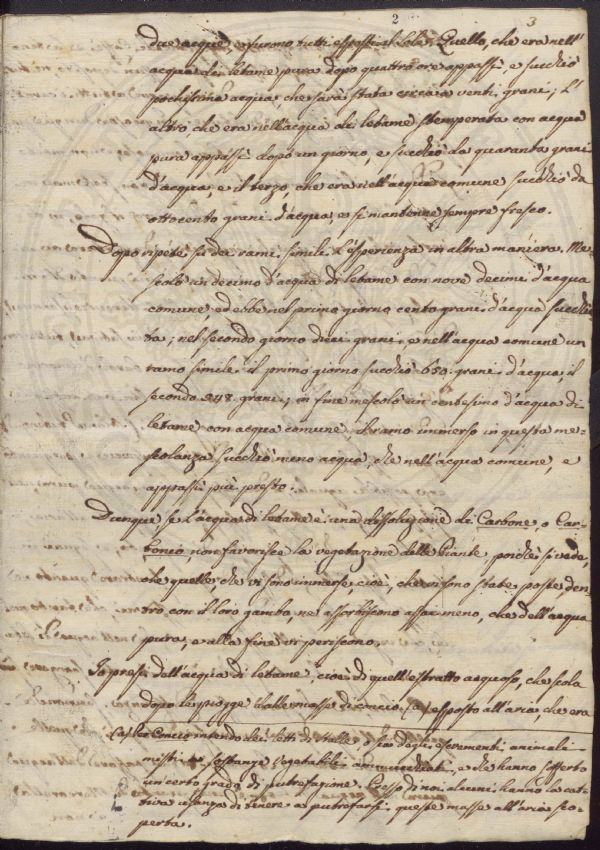 2 3
due acque, e furono tutti esposti al Sole. Quello, che era nell'
acqua di letame pura dopo quattro ore appassì, e succhiò
pochissima acqua che sarà stata circa venti grani; L'
altro che era nell'acqua di letame stemperata con acqua
pura appassì dopo un giorno, e succhiò da quaranta grani
d'acqua, e il terzo, che era nell'acqua comune succhiò da
ottocento grani d'acqua, e si mantenne sempre fresco.
Dopo ripetè su dei rami simili l'esperienza in altra maniera. Me-
scolò un decimo d'acqua di letame con nove decimi d'acqua
comune, ed ebbe nel primo giorno cento grani d'acqua succhia-
ta; nel secondo giorno dieci grani, e nell'acqua comune un
ramo simile il primo giorno succhiò 650. grani d'acqua, il
secondo 248. grani; in fine mescolò un centesimo d'acqua di
letame con acqua comune, il ramo immerso in questa me-
scolanza succhiò meno acqua, che nell'acqua comune, e
appassì più presto.
Dunque se l'acqua di letame è una dissoluzione di Carbone, o Car-
bonio, non favorisce la vegetazione delle Piante, poichè si vede,
che quelle, che vi sono immerse, cioè, che vi sono state poste den-
tro con il loro gambo, ne assorbiscono assai meno, che dell'acqua
pura, e alla fine vi periscono.
Io presi dell'acqua di letame, cioè di quell'estratto acquoso, che scola
dopo le piogge dalle masse di concio (a) esposto all'aria, che era
(a) Per Concio intendo dei letti di stalle, o sia degli escrementi animali
misti a sostanze vegetabili ammucchiati, e che hanno sofferto
un certo grado di putrefazione. Presso di noi alcuni hanno la cat-
tiva usanza di tenere a putrefarsi queste masse all'aria sco-
perta.